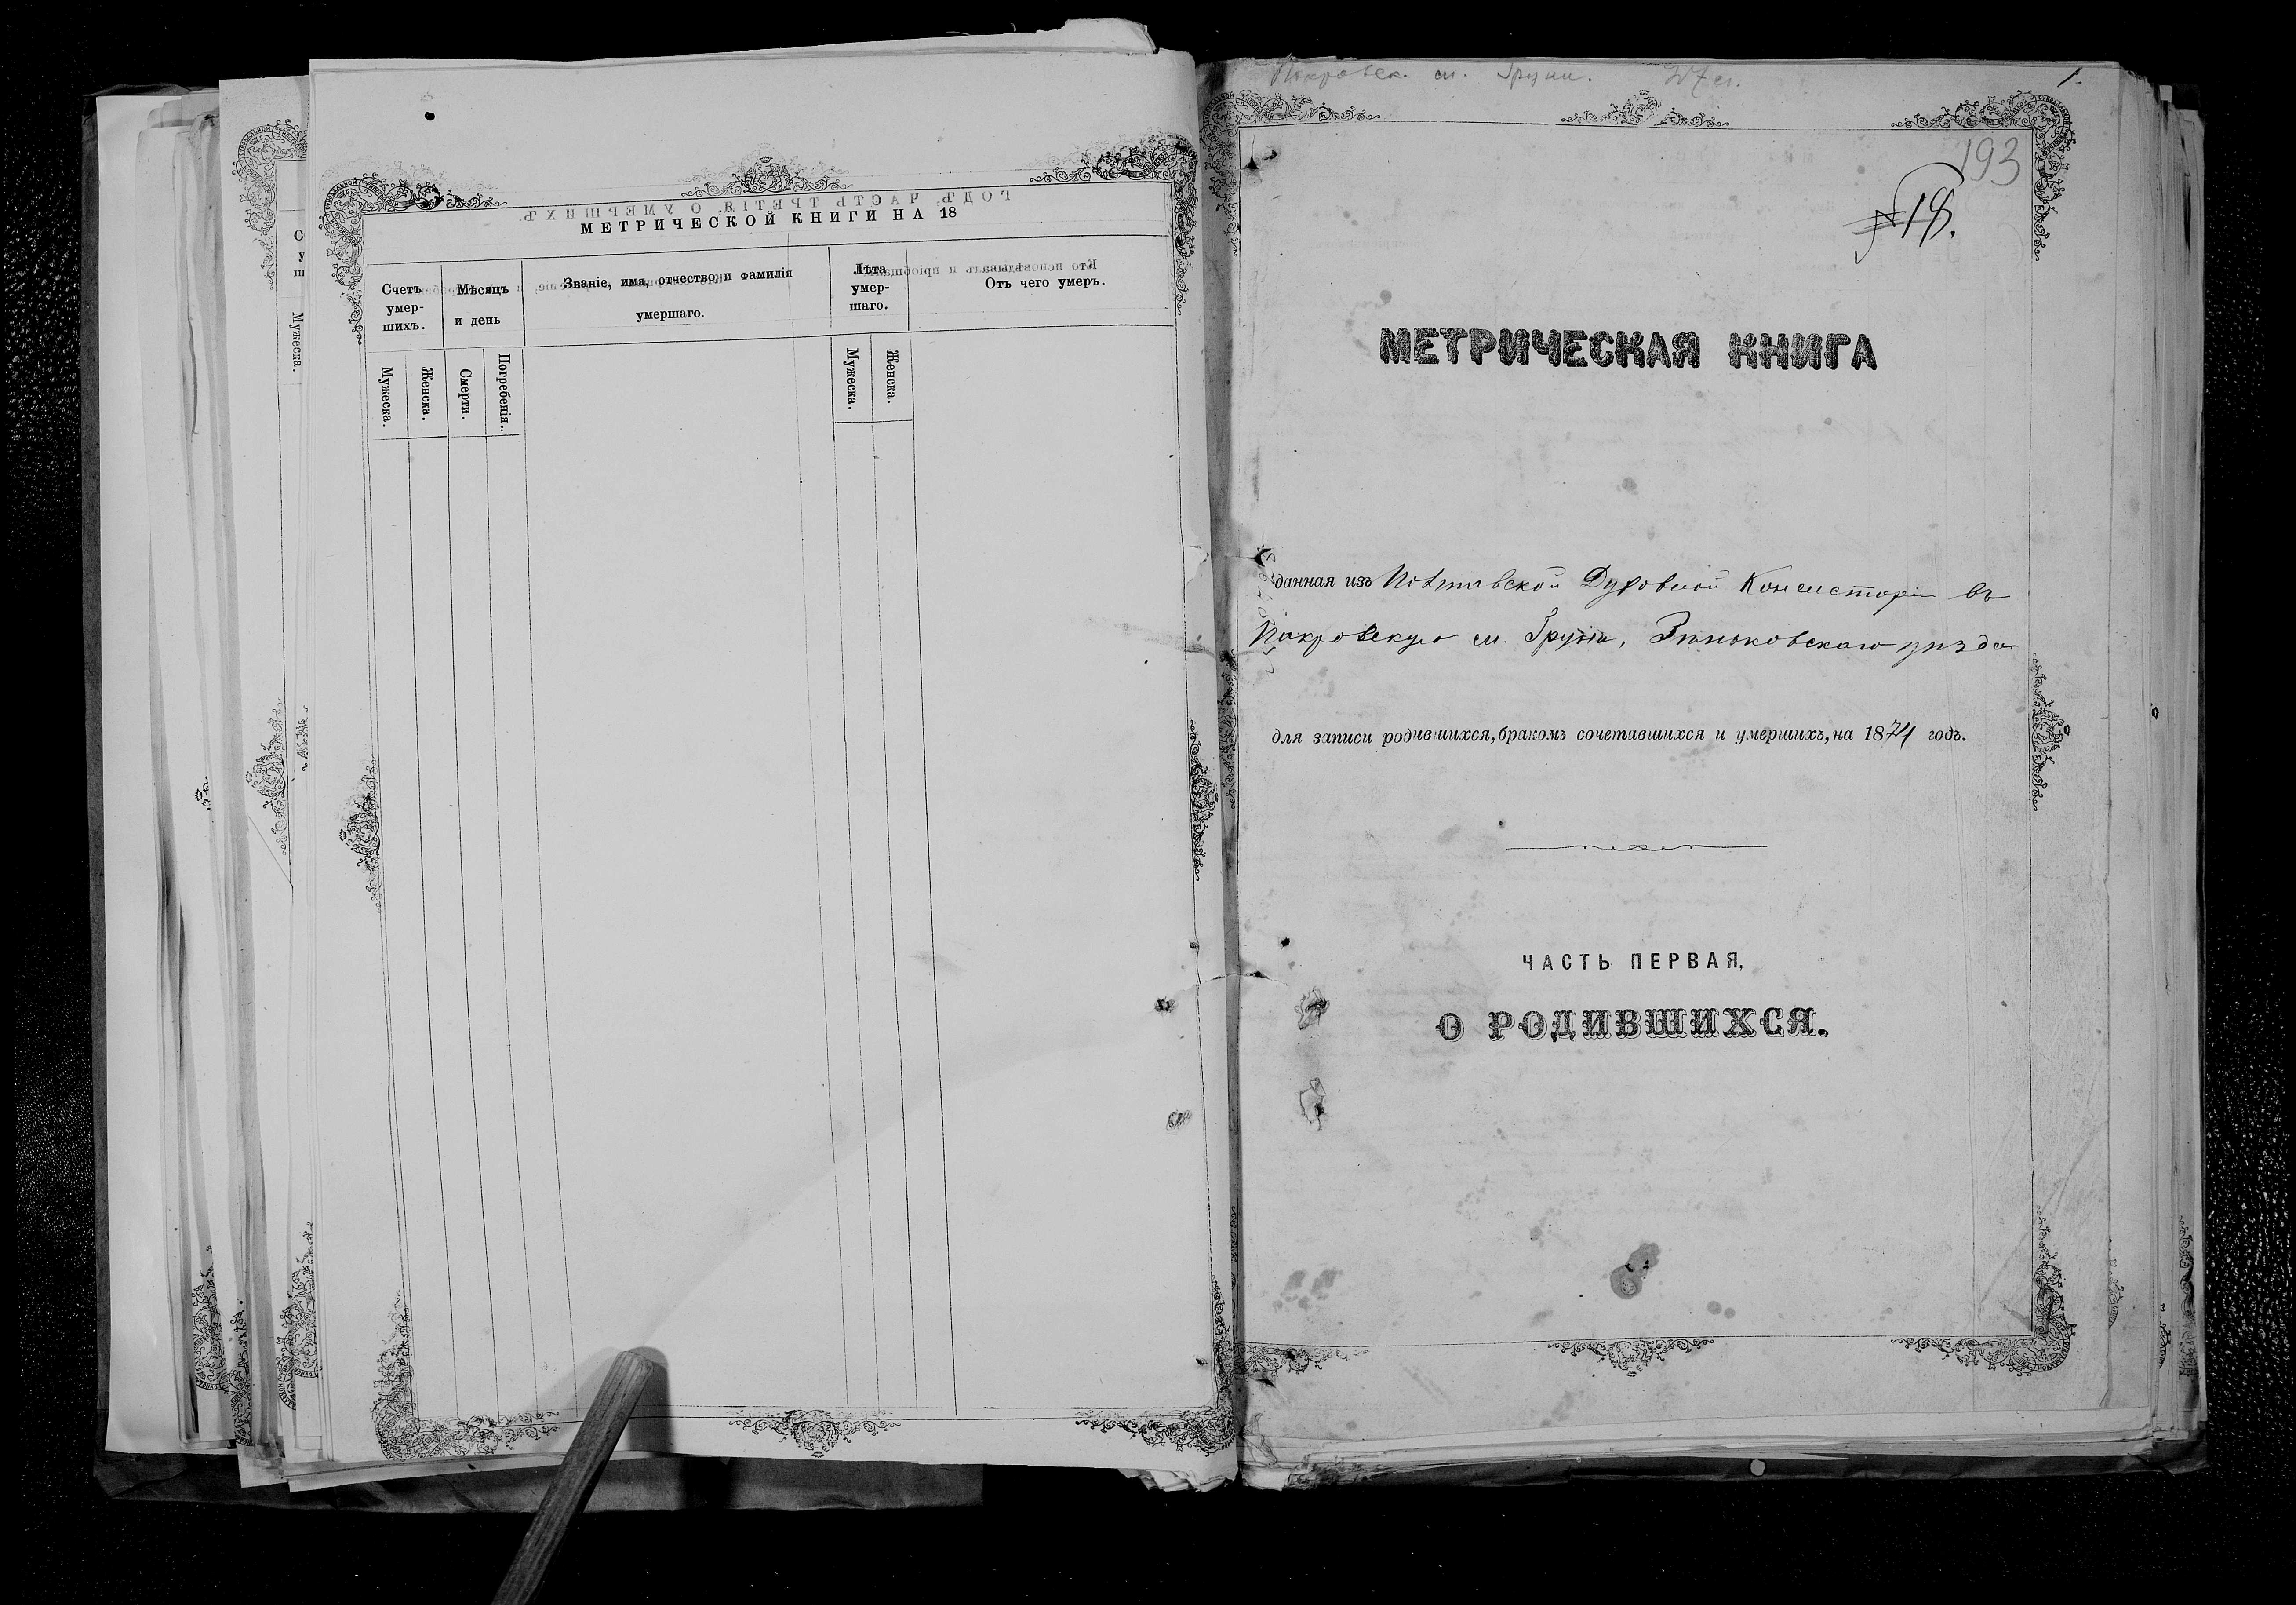 МЕТРИЧЕСКОЙ КНИГИ НА 18
Счетъ умер-шихъ.
Мѣсяцъ и день
Званіе, имя, отчество, и фамилія
умершаго.
Лѣта умер-шаго.
Отъ чего умеръ.
Мужеска.
Женска.
Смерти.
Погребенія.
Мужеска.
Женска.
Мужеска.
Покровск. м. Груни.
1.
193
№18.
МЕТРИЧЕСКАЯ КНИГА
данная изъ Полтавской Духовной Консисторіи въ
Покровскую м. Груни, Зиньковскаго уѣзда
для записи родившихся, бракомъ сочетавшихся и умершихъ, на 1874 годъ.
ЧАСТЬ ПЕРВАЯ,
О РОДИВШИХСЯ.